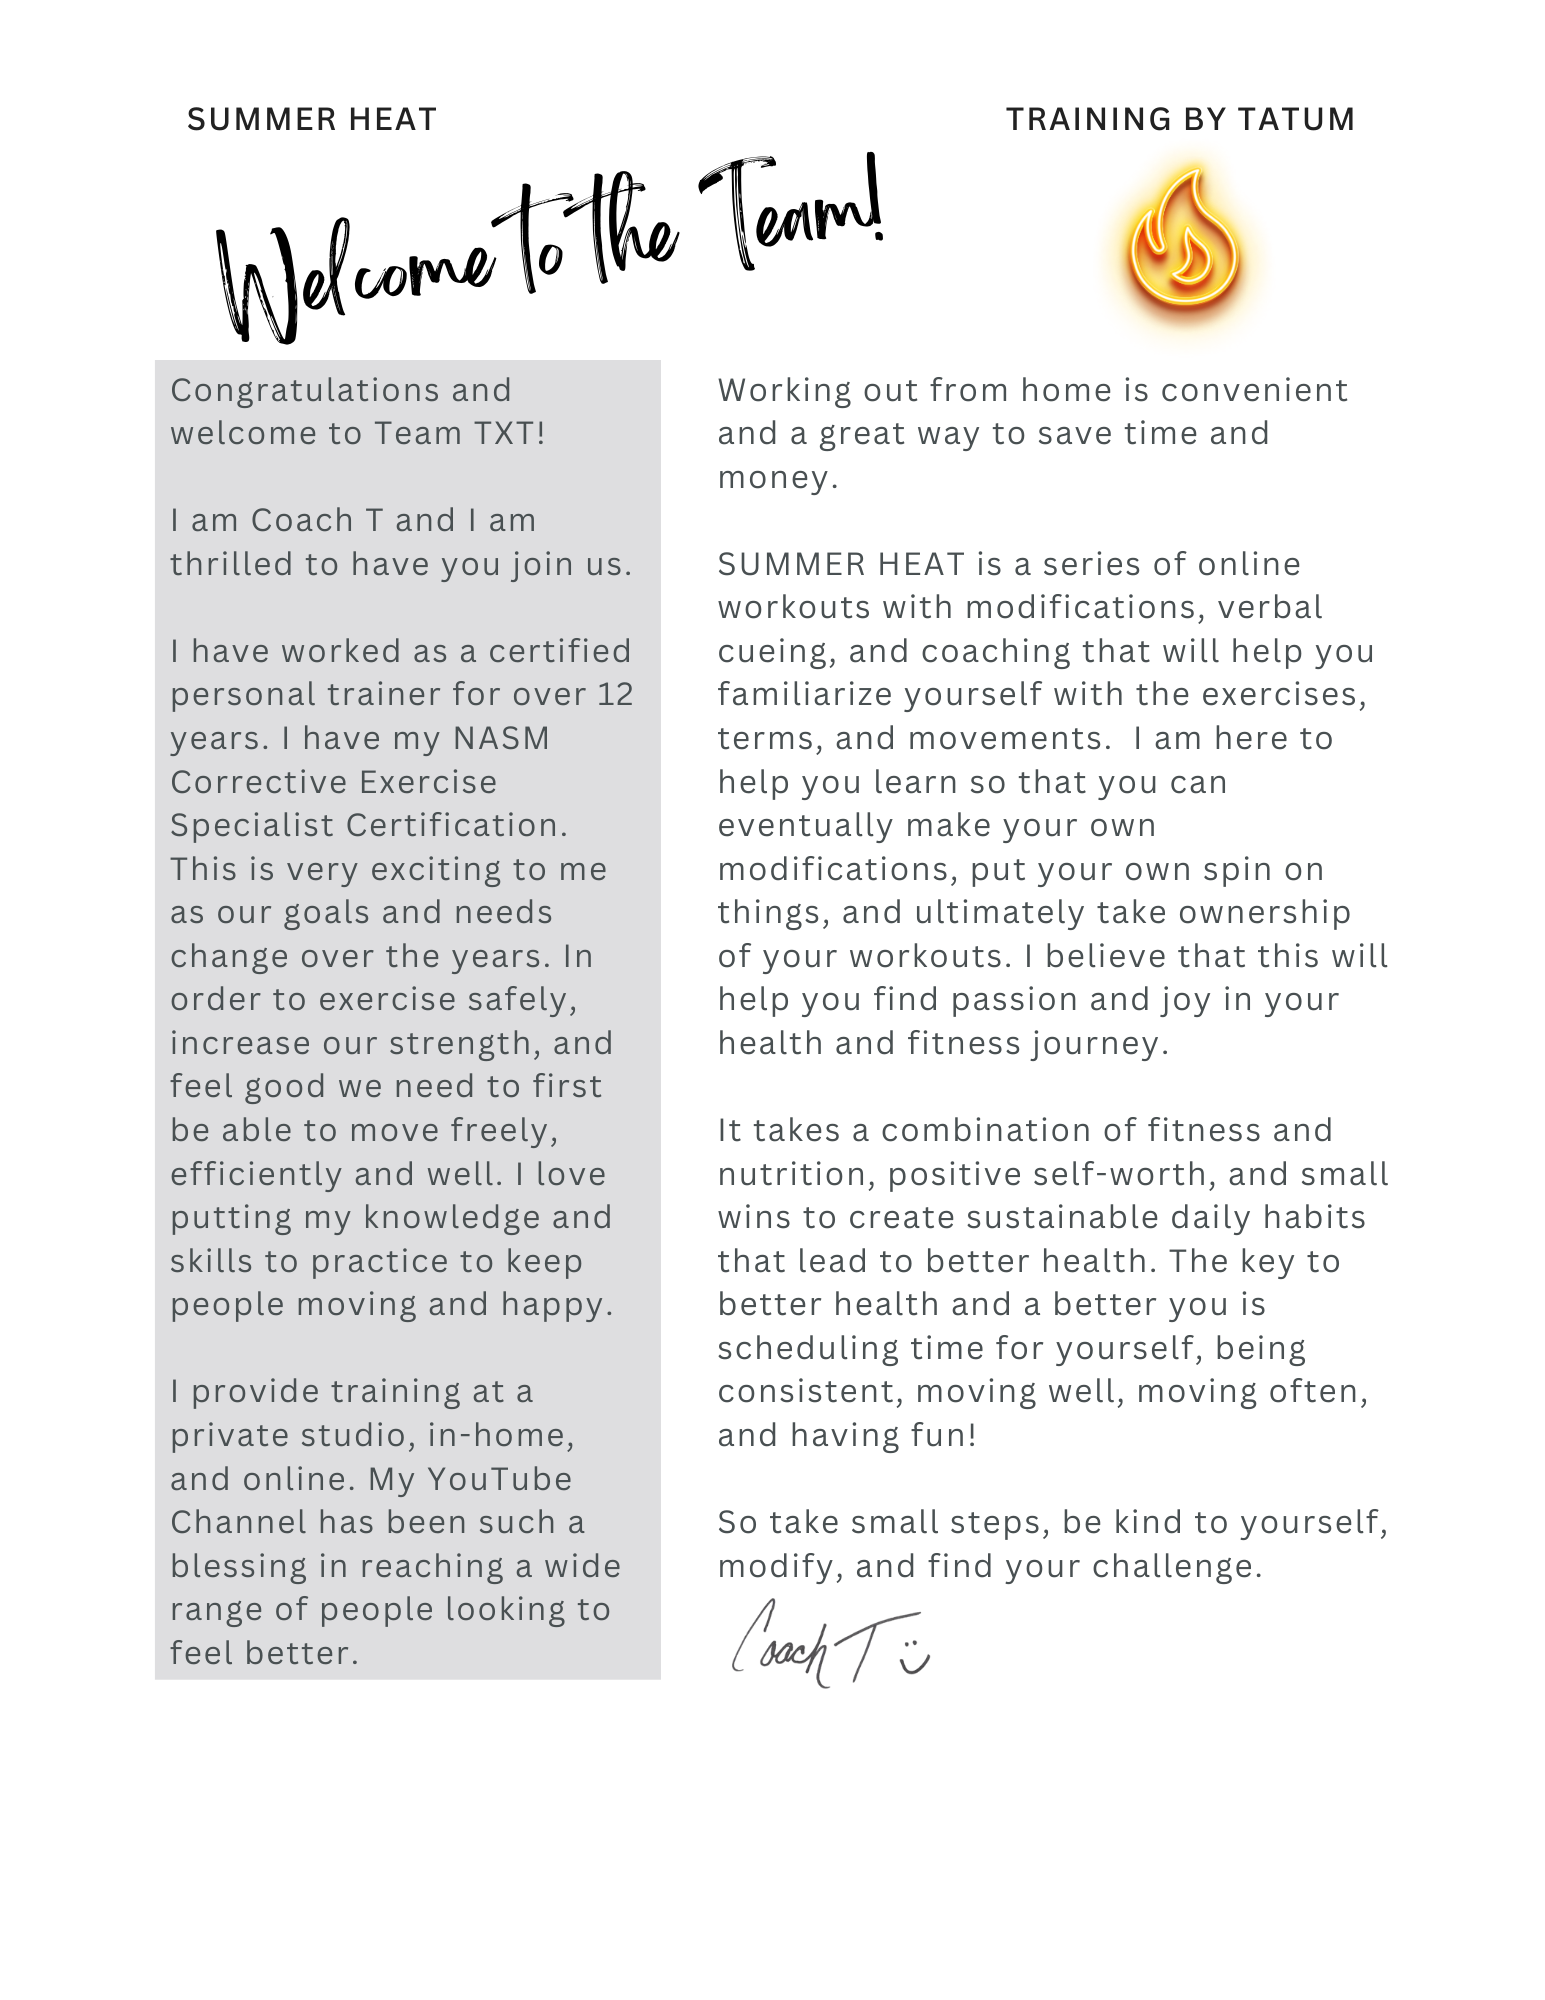 SUMMER HEAT
TRAINING BY TATUM
Welcome to the Team!
Congratulations and
welcome to Team TXT!
I am Coach T and I am
thrilled to have you join us.
I have worked as a certified
personal trainer for over 12
years. I have my NASM
Corrective Exercise
Specialist Certification.
This is very exciting to me
as our goals and needs
change over the years. In
order to exercise safely,
increase our strength, and
feel good we need to first
be able to move freely,
efficiently and well. I love
putting my knowledge and
skills to practice to keep
people moving and happy.
I provide training at a
private studio, in-home,
and online. My YouTube
Channel has been such a
blessing in reaching a wide
range of people looking to
feel better.
Working out from home is convenient
and a great way to save time and
money.
SUMMER HEAT is a series of online
workouts with modifications, verbal
cueing, and coaching that will help you
familiarize yourself with the exercises,
terms, and movements.  I am here to
help you learn so that you can
eventually make your own
modifications, put your own spin on
things, and ultimately take ownership
of your workouts. I believe that this will
help you find passion and joy in your
health and fitness journey.
It takes a combination of fitness and
nutrition, positive self-worth, and small
wins to create sustainable daily habits
that lead to better health. The key to
better health and a better you is
scheduling time for yourself, being
consistent, moving well, moving often,
and having fun!
So take small steps, be kind to yourself,
modify, and find your challenge.
Coach T